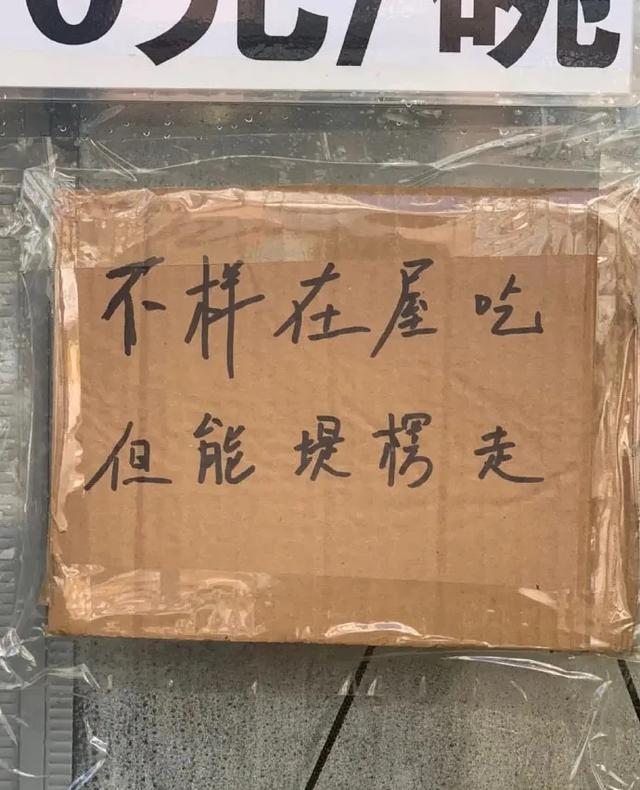 0元/碗
不样在屋吃
但能堤楞走